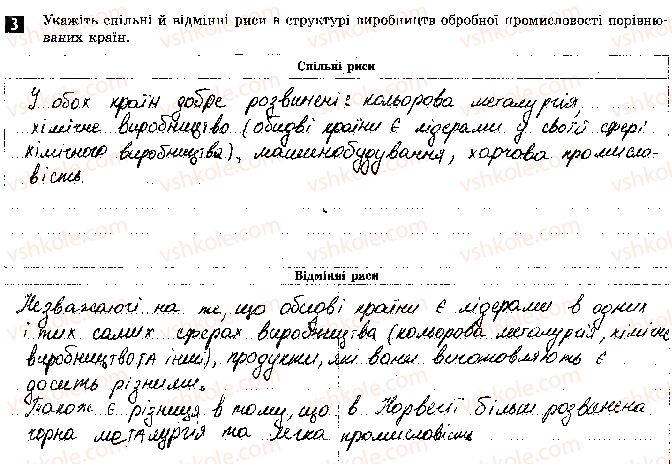 3 Укажіть спільні й відмінні риси в структурі виробництв обробної промисловості порівню-
ваних країн.
Спільні риси
У обох країн добре розвинені: кольорова металургія,
хімічне виробництво (обидві країни є лідерами у своїй сфері
хімічного виробництва), машинобудування, харчова промисло-
вість.
Відмінні риси
Незважаючі на те, що обидві країни є лідерами в одних
і тих самих сферах виробництва (кольорова металургія, хімічне
виробництво та інші), продукти, які вони виготовляють є
досить різними.
Також є різниця в тому, що в Норвегії більш розвинена
чорна металургія та легка промисловість